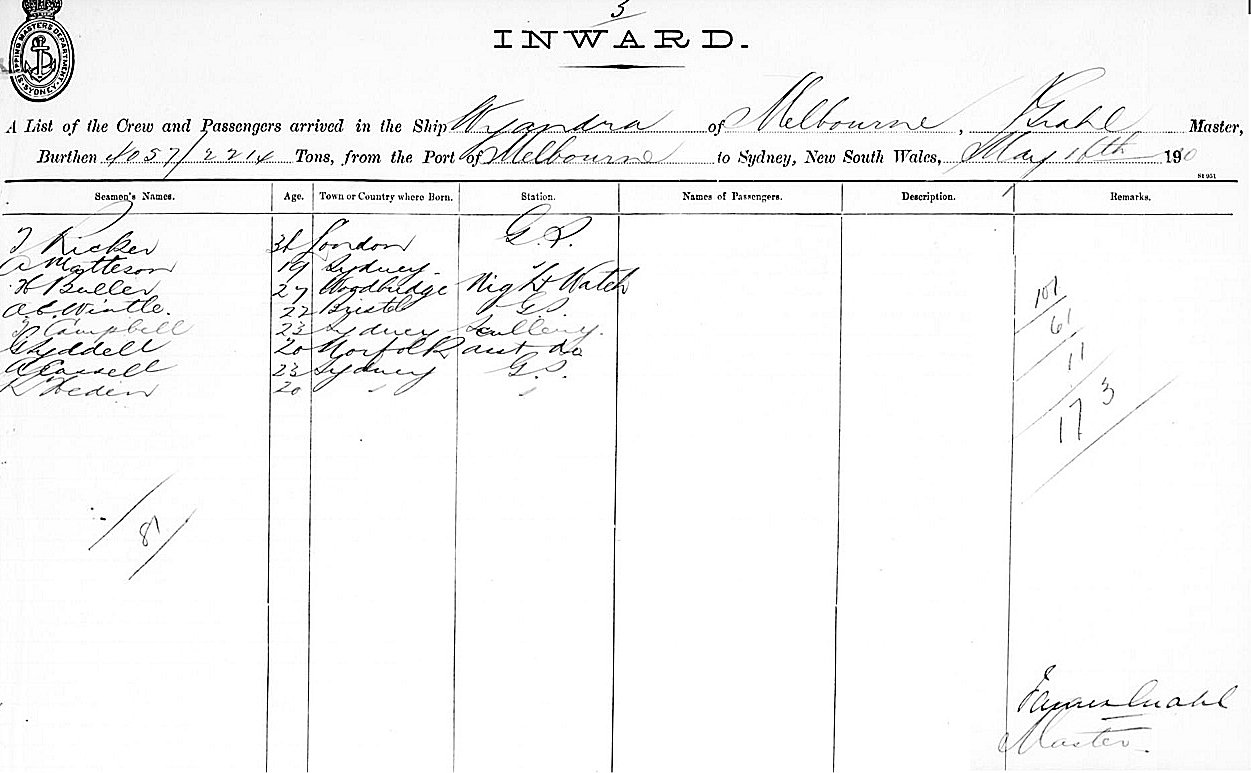 3
INWARD.
SHIPPING MASTERS DEPARTMENT SYDNEY
A List of the Crew and Passengers arrived in the Ship Wyandra of Melbourne, Master,
Burthen 4057/2214 Tons, from the Port of Melbourne to Sydney, New South Wales, May 16th 190
St 951
Seamen's Names. Age. Town or Country where Born. Station. Names of Passengers. Description. Remarks.
Ricker London G.S.
A Matteson 19 Sydney
H Buller 27 Woodbridge Night Watch
A C Wintle. 22 Bristol G.S.
Campbell 23 Sydney Scullery.
Lyddell 20 Norfolk asst do
A Cassell 23 Sydney G.S.
Hedin 20 " "
101
61
11
173
8/
Master.